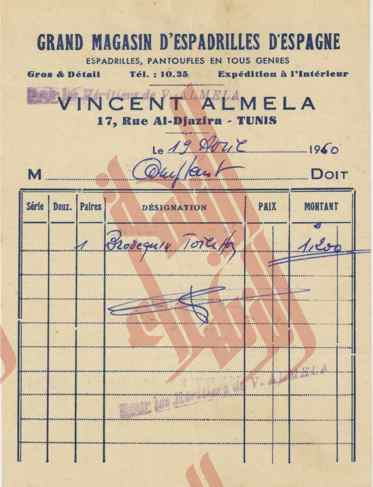 GRAND MAGASIN D'ESPADRILLES D'ESPAGNE
ESPADRILLES, PANTOUFLES EN TOUS GENRES
Gros & Détail Tél. : 10.35 Expédition à l'Intérieur
Pour les Héritiers de V. ALMELA
VINCENT ALMELA
17, Rue Al-Djazira - TUNIS
Le 19 Avril 1960
M Comptant DOIT
Série Douz. Paires DÉSIGNATION PAIX MONTANT
1 Brodequin 1,200
Pour les Héritiers de V. ALMELA